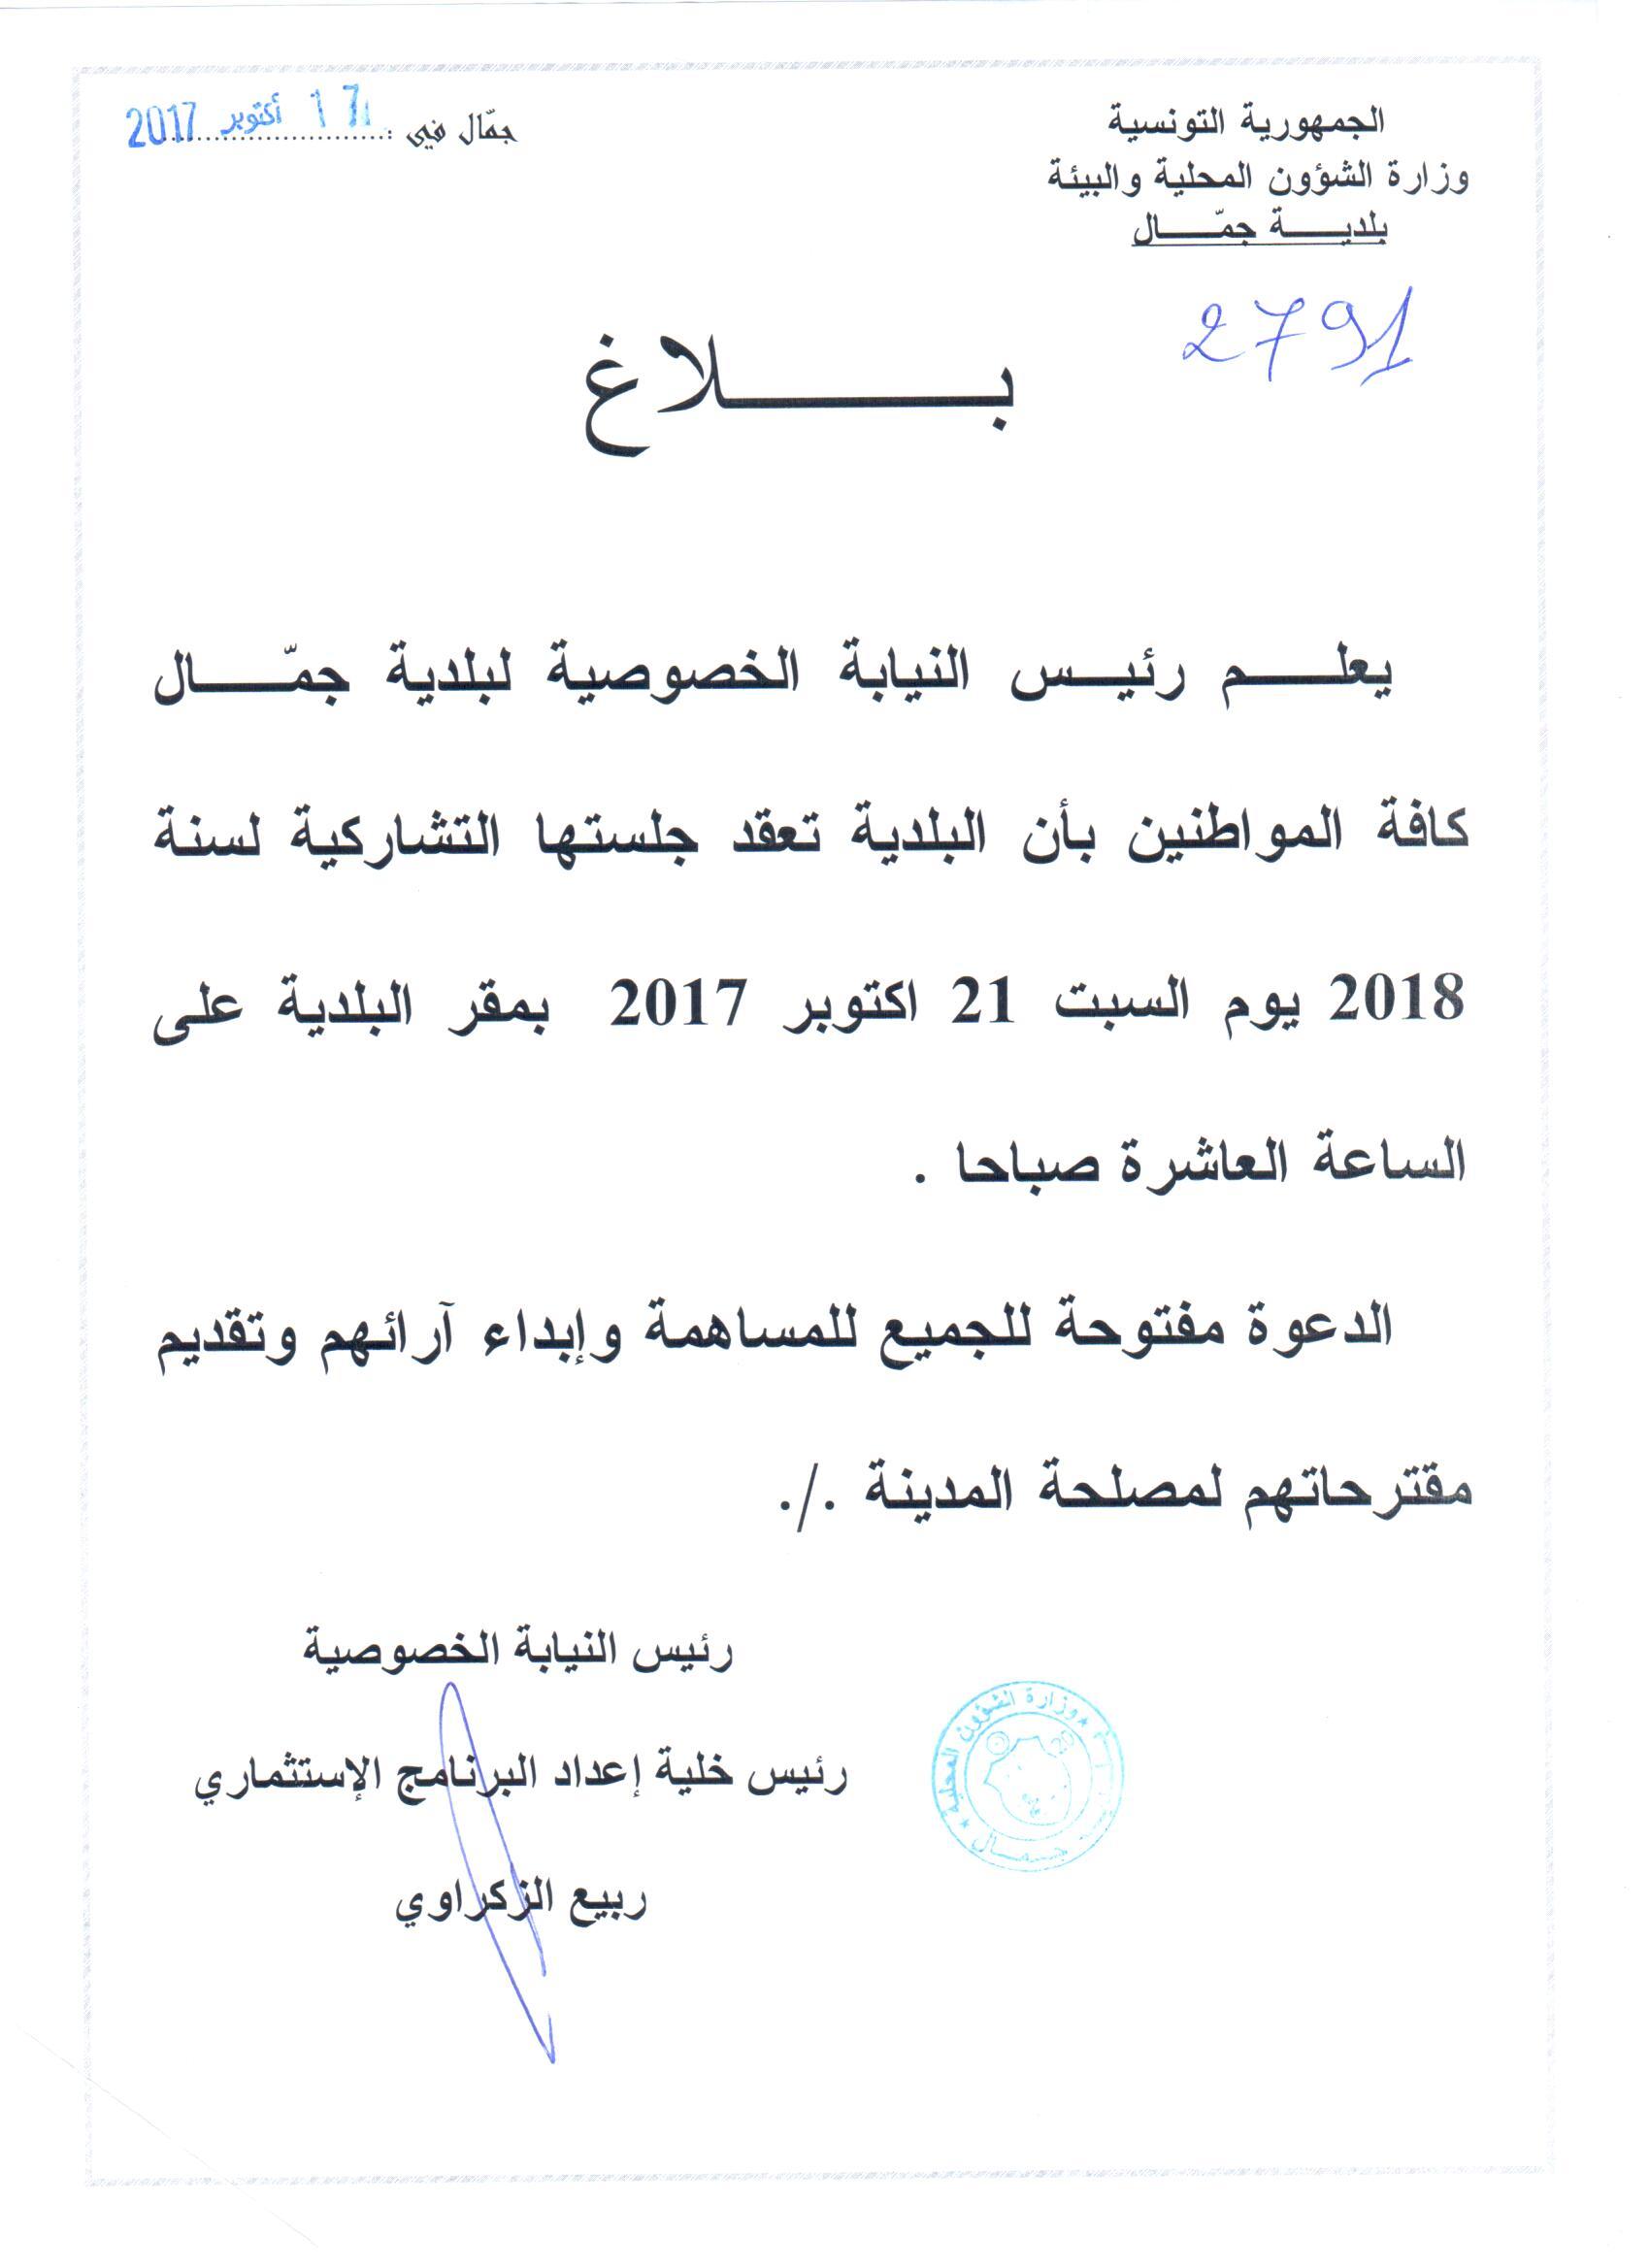 الجمهورية التونسية
وزارة الشؤون المحلية والبيئة
بلديـــــة جمّـــــال
جمّال في : 17 أكتوبر 2017
2791
بـــــــــلاغ
يعلـــــم رئيـــس النيابة الخصوصية لبلدية جمّـــــال
كافة المواطنين بأن البلدية تعقد جلستها التشاركية لسنة
2018 يوم السبت 21 اكتوبر 2017 بمقر البلدية على
الساعة العاشرة صباحا .
الدعوة مفتوحة للجميع للمساهمة وإبداء آرائهم وتقديم
مقترحاتهم لمصلحة المدينة ./.
رئيس النيابة الخصوصية
رئيس خلية إعداد البرنامج الإستثماري
ربيع الزكراوي
وزارة الشؤون المحلية
جمال